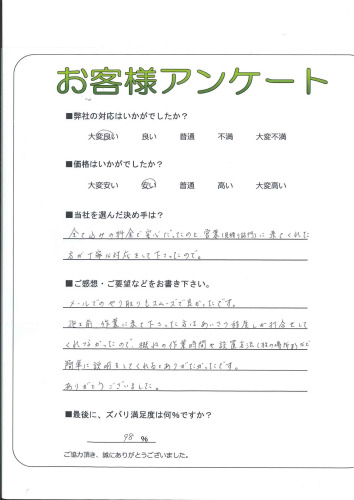 お客様アンケート
■弊社の対応はいかがでしたか？
大変良い 良い 普通 不満 大変不満
■価格はいかがでしたか？
大変安い 安い 普通 高い 大変高い
■当社を選んだ決め手は？
全て込みの料金で安心だったのと 営業(見積り訪問)に来てくれた
方が丁寧な対応をして下さったので。
■ご感想・ご要望などをお書き下さい。
メールでのやり取りもスムーズで良かったです。
施工前 作業に来て下さった方はあいさつ程度しか打合せして
くれなかったので、撤収の作業時間や設置方法(柱の場所)など
簡単に説明をしてくれるとありがたかったです。
ありがとうございました。
■最後に、ズバリ満足度は何％ですか？
98 ％
ご協力頂き、誠にありがとうございました。